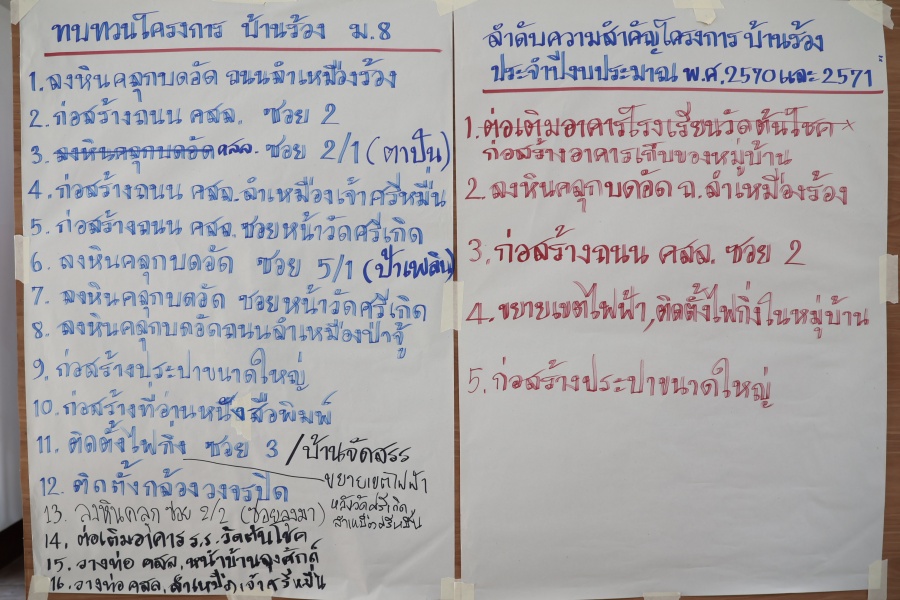 ทบทวนโครงการ บ้านร้อง ม.8
1. ลงหินคลุกบดอัด ถนนลำเหมืองร้อง
2. ก่อสร้างถนน คสล. ซอย 2
3. ลงหินคลุกบดอัด คสล. ซอย 2/1 (ตาปัน)
4. ก่อสร้างถนน คสล. ลำเหมืองเจ้าศรีหมื่น
5. ก่อสร้างถนน คสล. ซอยหน้าวัดศรีเกิด
6. ลงหินคลุกบดอัด ซอย 5/1 (ป้าเพลิน)
7. ลงหินคลุกบดอัด ซอยหน้าวัดศรีเกิด
8. ลงหินคลุกบดอัดถนนลำเหมืองป่าจู้
9. ก่อสร้างประปาขนาดใหญ่
10. ก่อสร้างที่อ่านหนังสือพิมพ์
11. ติดตั้งไฟกิ่ง ซอย 3 / บ้านจัดสรร
ขยายเขตไฟฟ้า
หลังวัดศรีเกิด
ลำเหมืองศรีหมื่น
12. ติดตั้งกล้องวงจรปิด
13. ลงหินคลุก ซอย 2/2 (ซอยลุงมา)
14. ต่อเติมอาคาร ร.ร. วัดต้นโชค
15. วางท่อ คสล. หน้าบ้านลุงศักดิ์
16. วางท่อ คสล. ลำเหมืองเจ้าศรีหมื่น
ลำดับความสำคัญโครงการ บ้านร้อง
ประจำปีงบประมาณ พ.ศ. 2570 และ 2571
1. ต่อเติมอาคารโรงเรียนวัดต้นโชค ×
ก่อสร้างอาคารเก็บของหมู่บ้าน
2. ลงหินคลุกบดอัด ถ. ลำเหมืองร้อง
3. ก่อสร้างถนน คสล. ซอย 2
4. ขยายเขตไฟฟ้า, ติดตั้งไฟกิ่งในหมู่บ้าน
5. ก่อสร้างประปาขนาดใหญ่